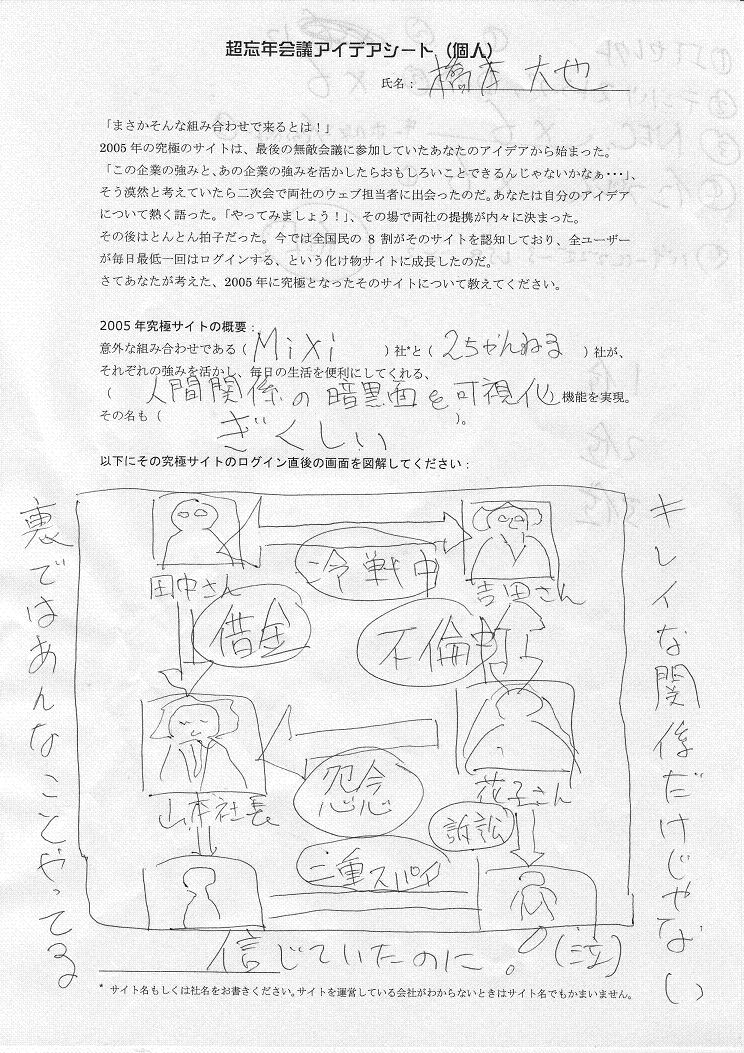 超忘年会議アイデアシート（個人）
氏名： 橋本 大也
「まさかそんな組み合わせで来るとは！」
2005 年の究極のサイトは、最後の無敵会議に参加していたあなたのアイデアから始まった。
「この企業の強みと、あの企業の強みを活かしたらおもしろいことできるんじゃないかなぁ・・・」、
そう漠然と考えていたら二次会で両社のウェブ担当者に出会ったのだ。あなたは自分のアイデア
について熱く語った。「やってみましょう！」、その場で両社の提携が内々に決まった。
その後はとんとん拍子だった。今では全国民の 8 割がそのサイトを認知しており、全ユーザー
が毎日最低一回はログインする、という化け物サイトに成長したのだ。
さてあなたが考えた、2005 年に究極となったそのサイトについて教えてください。
2005 年究極サイトの概要：
意外な組み合わせである（ Mixi ）社*と（ 2ちゃんねる ）社が、
それぞれの強みを活かし、毎日の生活を便利にしてくれる、
（ 人間関係の暗黒面を可視化 機能を実現。
その名も（ ぎくしぃ ）。
以下にその究極サイトのログイン直後の画面を図解してください：
キレイな関係だけじゃない
裏ではあんなことやってる
田中さん
冷戦中
吉田さん
借金
不倫中
山本社長
怨念
花子さん
訴訟
二重スパイ
信じていたのに。（泣）
* サイト名もしくは社名をお書きください。サイトを運営している会社がわからないときはサイト名でもかまいません。